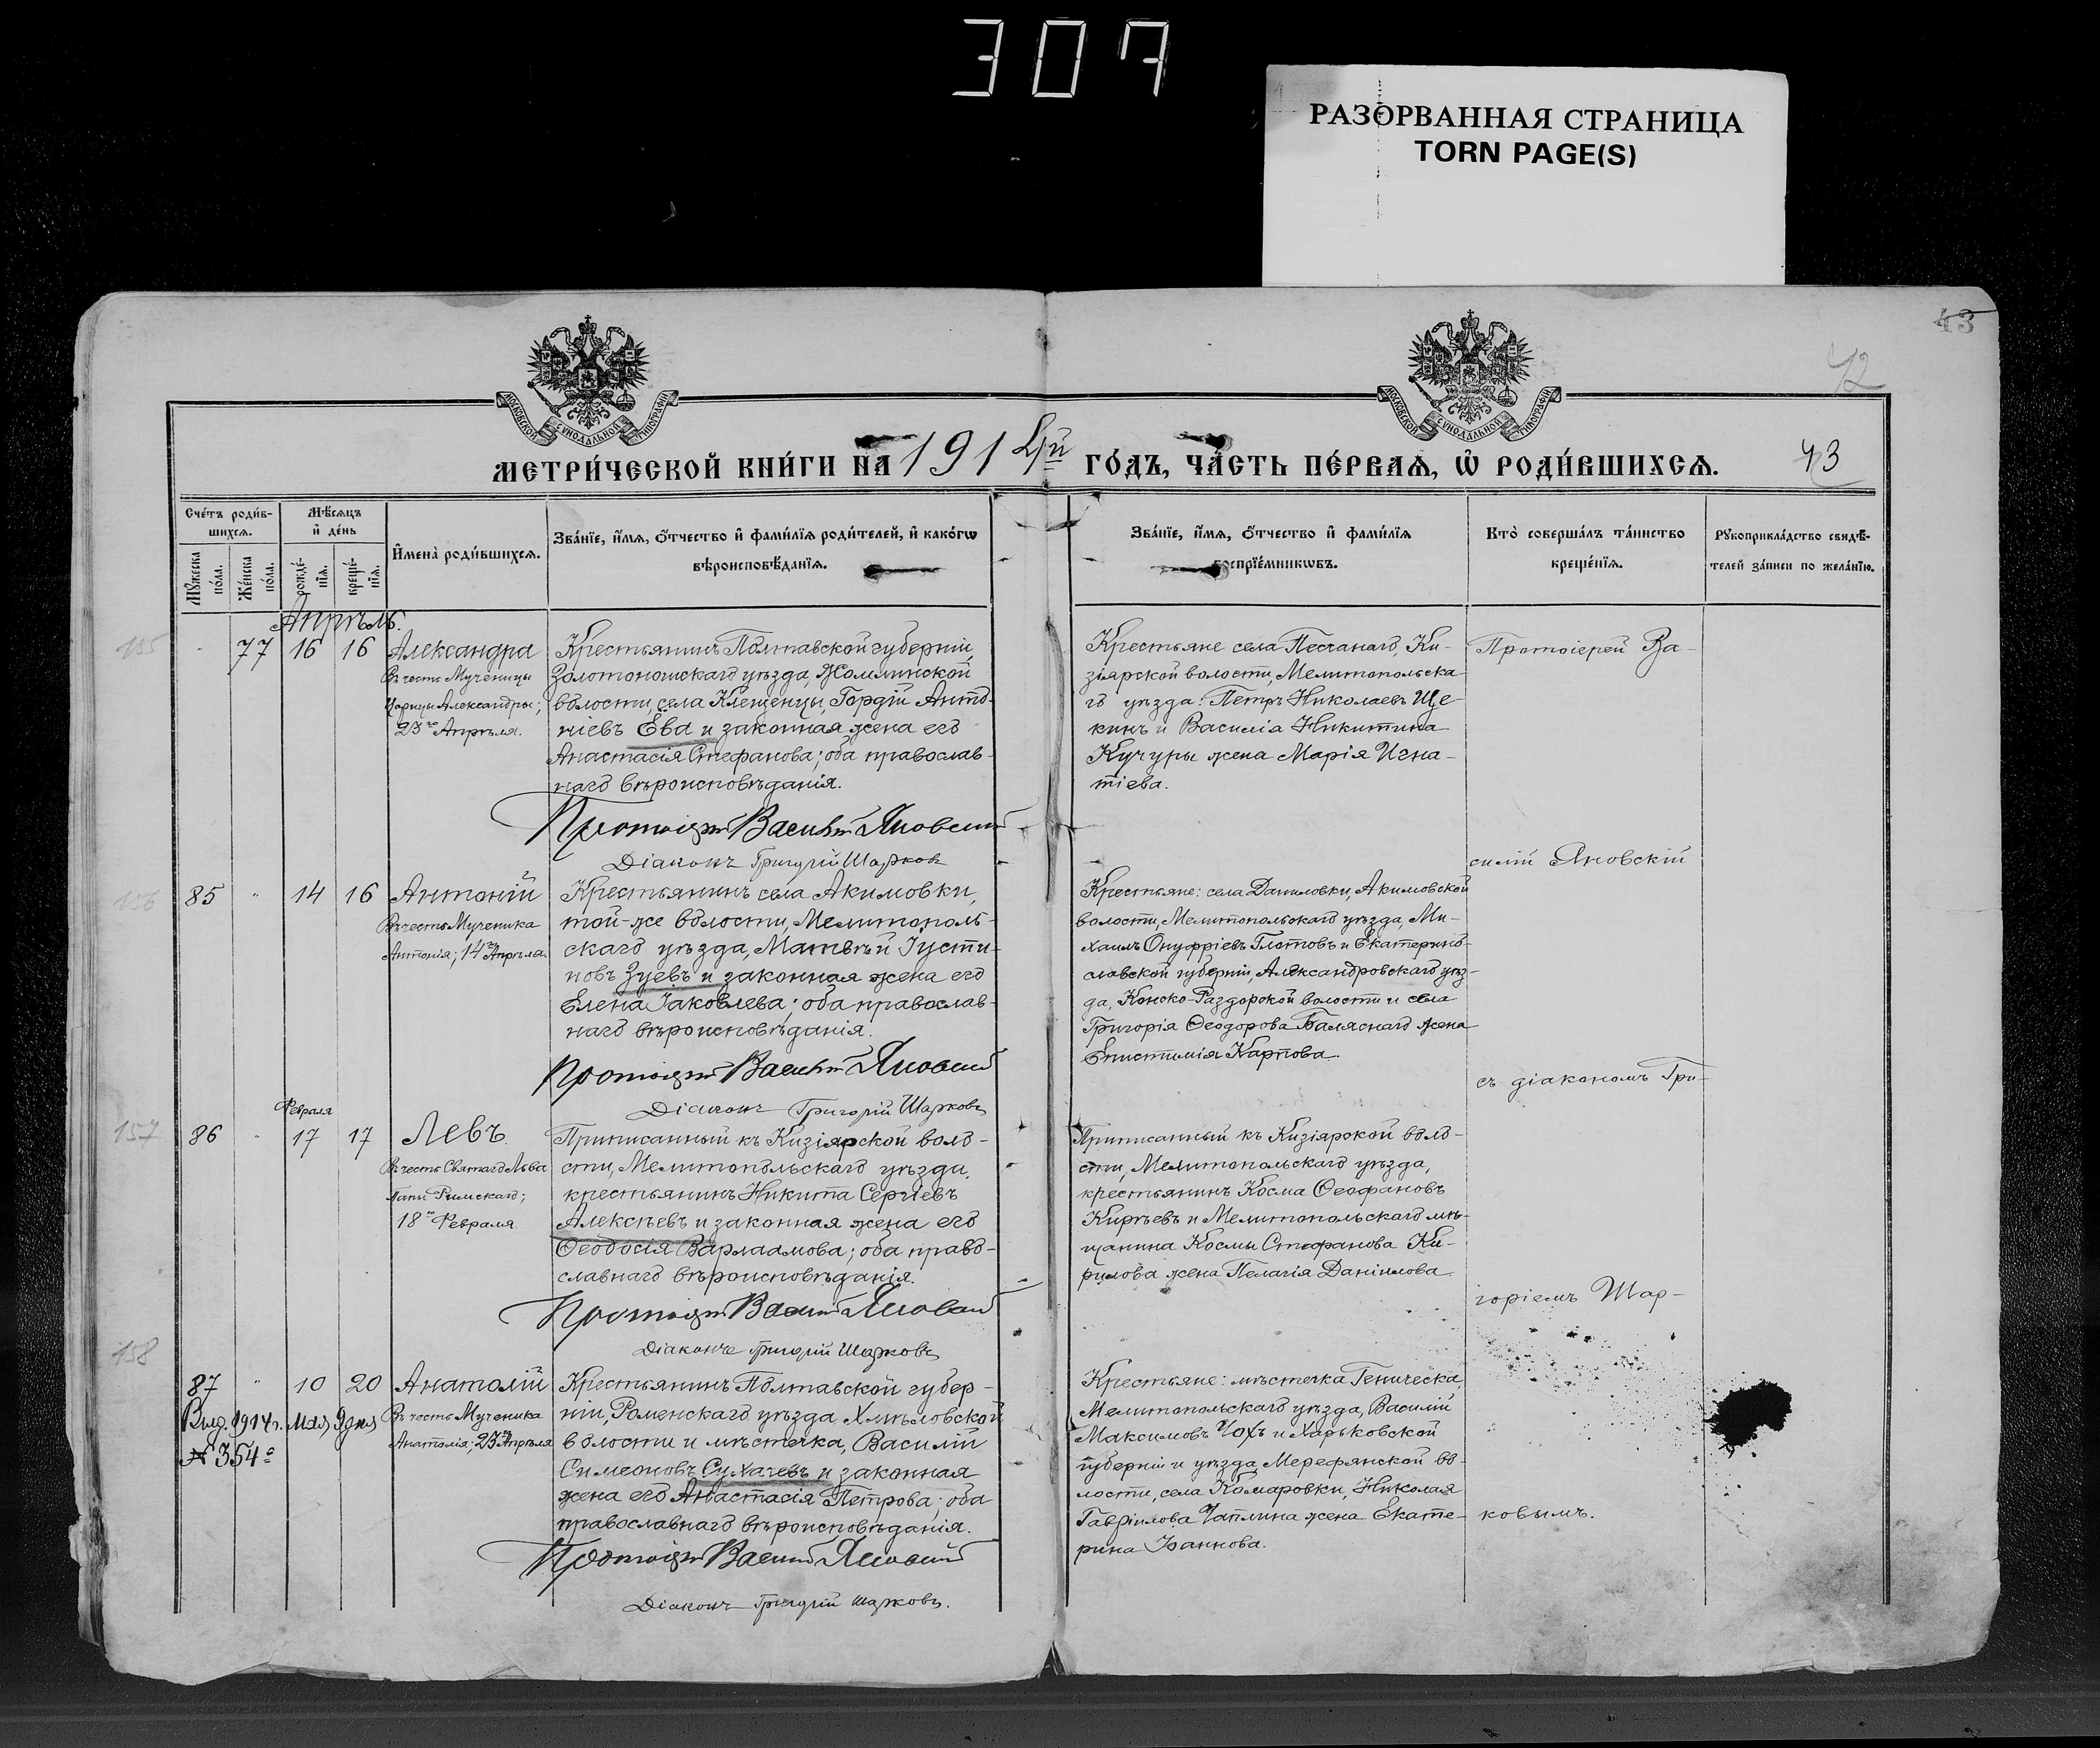 307
РАЗОРВАННАЯ СТРАНИЦА
TORN PAGE(S)
43
42
МОСКОВСКОЙ СѴНОДАЛЬНОЙ ТИПОГРАФІИ
МОСКОВСКОЙ СѴНОДАЛЬНОЙ ТИПОГРАФІИ
МЕТРИ́ЧЕСКОЙ КНИ́ГИ НА 1914й ГО́ДЪ, ЧА́СТЬ ПЕ́РВАѦ, Ѽ РОДИ́ВШИХСѦ.
43
Сче́тъ роди́в-
шихсѧ.
Мꙋ́жеска по́ла.
Же́нска по́ла.
Мѣ́сѧцъ
и҆ де́нь
рожде́-нїѧ.
креще́-нїѧ.
И҆мена̀ роди́вшихсѧ.
Зва́нїе, и҆́мѧ, ѻ҆́тчество и҆ фами́лїѧ роди́телей, и҆ како́гѡ
вѣроисповѣ́данїѧ.
Зва́нїе, и҆́мѧ, ѻ҆́тчество и҆ фами́лїѧ
воспрїе́мникѡвъ.
Кто̀ соверша́лъ та́инство
креще́нїѧ.
Рꙋкоприкла́дство свидѣ́-
телей за́писи по жела́нїю.
Апрѣль.
155
77 16 16
Александра
Въ честь Мученицы
Царицы Александры;
23го Апрѣля.
Крестьянинъ Полтавской губерніи,
Золотоношскаго уѣзда,
волости, села Клещенцы, Гордій Анто-
ніевъ Ева и законная жена его
Анастасія Стефанова; оба православ-
наго вѣроисповѣданія.
Протоіерей Василій Яновскій
Діаконъ Григорій Шарковъ
Крестьяне села Песчанаго, Ки-
зіярской волости, Мелитопольска-
го уѣзда: Петръ Николаевъ Ще-
кинъ и Василія Никитина
Кучуры жена Марія Игна-
тіева.
Протоіерей Ва-
силій Яновскій
156
85 " 14 16
Антоній
Въ честь Мученика
Антонія; 14го Апрѣля.
Крестьянинъ села Акимовки,
той-же волости, Мелитополь-
скаго уѣзда, Матвѣй Іусти-
новъ Зуевъ и законная жена его
Елена Іаковлева; оба православ-
наго вѣроисповѣданія.
Протоіерей Василій Яновскій
Діаконъ Григорій Шарковъ
Крестьяне: села Даниловки, Акимовской
волости, Мелитопольскаго уѣзда, Ми-
хаилъ Онуфріевъ Глотовъ и Екатерино-
славской губерніи, Александровскаго уѣз-
да, Конско-Раздорской волости и села
Григорія Ѳеодорова Баляснаго жена
Епистимія Карпова.
съ діакономъ Гри-
157
Февраля
86 " 17 17
Левъ.
Въ честь Святаго Льва
Папы Римскаго;
18го Февраля
Приписанный къ Кизіярской воло-
сти, Мелитопольскаго уѣзда,
крестьянинъ Никита Сергіевъ
Алексѣевъ и законная жена его
Ѳеодосія Варлаамова; оба право-
славнаго вѣроисповѣданія.
Протоіерей Василій Яновскій
Діаконъ Григорій Шарковъ
Приписанный къ Кизіярской воло-
сти, Мелитопольскаго уѣзда,
крестьянинъ Косма Ѳеофановъ
Кирѣевъ и Мелитопольскаго мѣ-
щанина Космы Стефанова Ки-
рилова жена Пелагія Даніилова.
горіемъ Шар-
158
87 " 10 20
Анатолій
Въ честь Мученика
Анатолія; 23го Апрѣля
Выд. 1914 г. мая 9 дня
№ 354
Крестьянинъ Полтавской губер-
ніи, Роменскаго уѣзда Хмѣловской
волости и мѣстечка, Василій
Симеоновъ Сухачевъ и законная
жена его Анастасія Петрова; оба
православнаго вѣроисповѣданія.
Протоіерей Василій Яновскій
Діаконъ Григорій Шарковъ.
Крестьяне: мѣстечка Геническа,
Мелитопольскаго уѣзда, Василій
Максимовъ Чохъ и Харьковской
губерніи и уѣзда, Мерефянской во-
лости, села Комаровки, Николая
Гавріилова Чаплина жена Екате-
рина Іоаннова.
ковымъ.